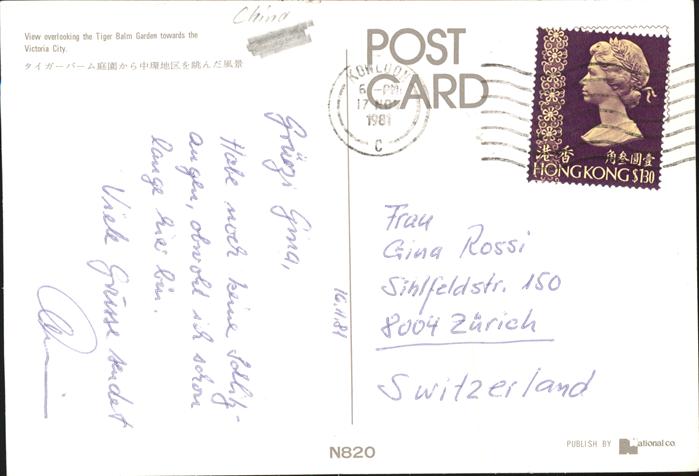 China
View overlooking the Tiger Balm Garden towards the
Victoria City.
タイガーバーム庭園から中環地区を眺んだ風景
POST
CARD
KOWLOON
6 - PM
17 NO
1981
C
香港
壹圓叁角
HONG KONG $1.30
Grüezi Gina,
Habe noch keine Schlitz-
augen, obwohl ich schon
lange hier bin.
Viele Grüsse sendet
16.11.81
Frau
Gina Rossi
Sihlfeldstr. 150
8004 Zürich
Switzerland
N820
PUBLISH BY National co.